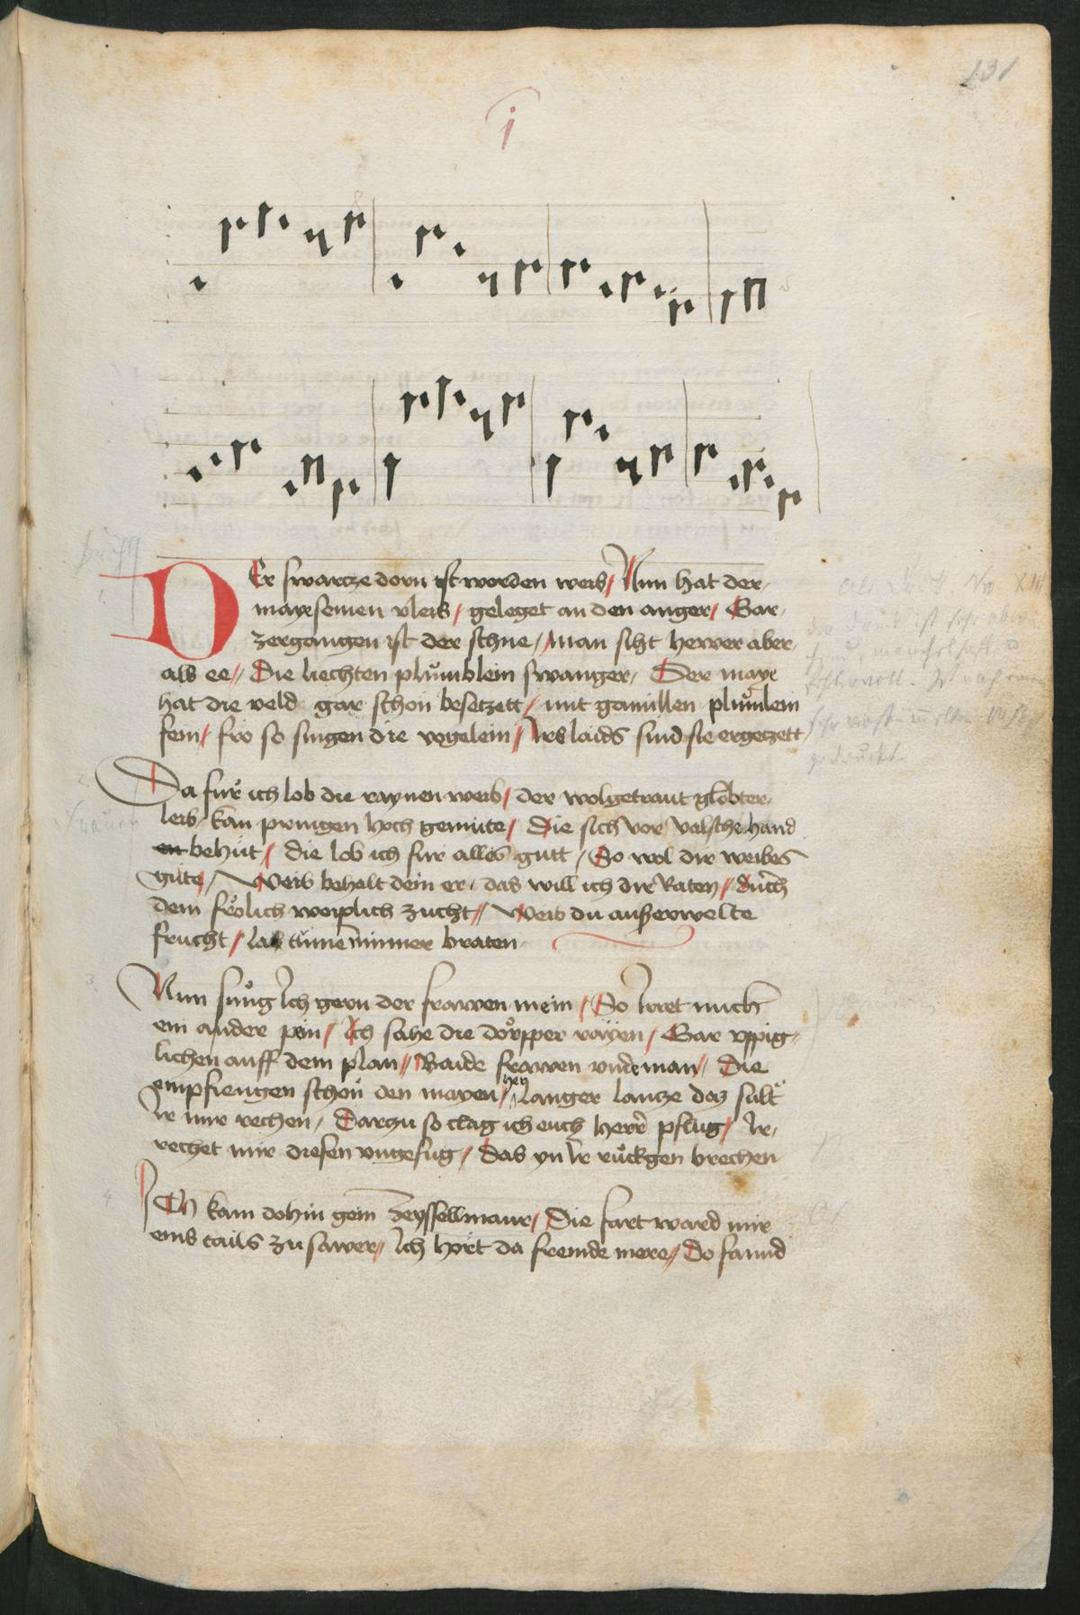 131
j
DEr swarcze dorn ist worden weis / Nun hat der
mayrsemen vleis / geleget an den anger / Gar
zergangen ist der schne / Man siht hewer aber
als ee // Die liechten plůmblein swanger / Der maye
hat die veld gar schon besetzett / mit gamillen plůmlein
fein / fro so singen die vogelein // Irs laids sind sie ergetzett
Da für ich lob die raynen weib / der wolgetraut globter
leib / kan pringen hoch gemüte / Die sich vor valscher hand
behüt / die lob ich für alles gutt / So wol dir weibes
güte / Weib behalt dein er / das will ich dir Raten / durch
dein frölich weiplich zucht // Weib du außerwelte
frucht / nimmer braten
Nun sůng Ich gern der frawen mein / So Irret mich
ein ander pein / Ich sahe die dörpper rayen / Gar vppig
lichen auff dem plan // Baide frawen vnde man / Die
empfiengen schon den mayen / Langer lancze daz sült
Ir mir rechen / Darzu so clag ich euch herr pflug / Ir
rechet mir diesen vngefug / Das yn Ir rückgen brechen
ICh kam dohin gein Zeyssellmaur / Die fart ward mir
eins tails zu sawer / Ich hört da fremde mere // Do fannd